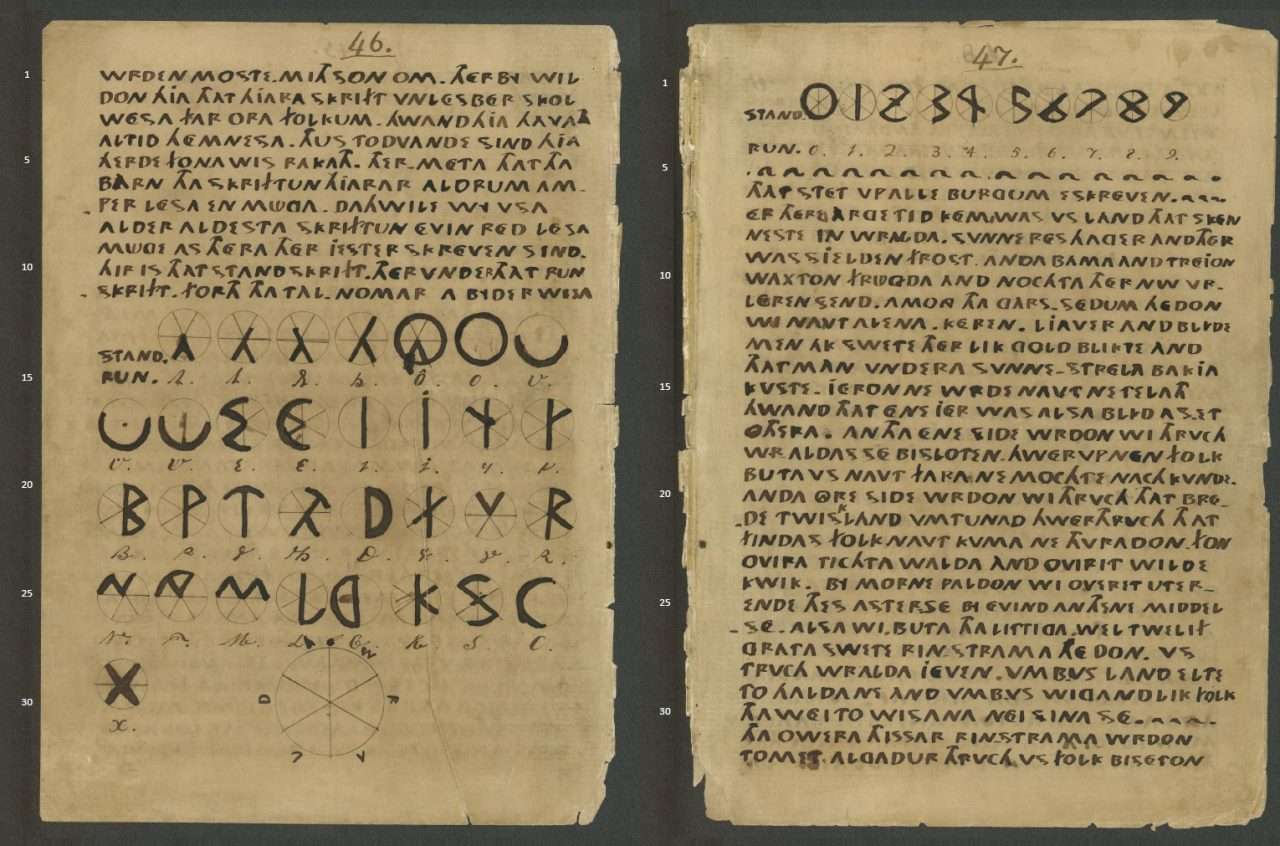 46.
1 WRDEN MOSTE. MITH SON OM. THERBY WIL
DON HIA THAT HIARA SKRIFT VNLESBER SKOL
WESA FAR ORA FOLKUM. HWAND HIA HAVA
ALTID HEMNESA. THUS TODVANDE SIND HIA
5 HERDE FONA WIS RAKATH. THER-META THAT THA
BARN THA SKRIFTUN HIARAR ALDRUM AM-
PER LESA EN MUGA. DAHWILE WY VSA
ALDER ALDESTA SKRIFTUN EVIN RED LESA
MUGE AS THERA THER IESTER SKREVEN SIND.
10 HIR IS THAT STANDSKRIFT. THERVNDER THAT RUN
SKRIFT. FORTH THA TAL. NOMAR A BYDER WISA
STAND.
15 RUN.
20
B P T TH D F V R
25
N NG M L G K S C
30 X
x.
W R A L D A
47.
1 STAND. 0 1 2 3 4 5 6 7 8 9
RUN. 0. 1. 2. 3. 4. 5. 6. 7. 8. 9.
5
THAT STET VP ALLE BURGUM ESKREVEN.
ER THERE ARGE TID KEM.WAS VS LAND THAT SKEN
NESTE IN WRALDA. SVNNE RES HAGER AND THER
WAS SIELDEN FROST. ANDA BAMA AND TREJON
10 WAXTON FRUGDA AND NOCHTA THER NW VR-
LEREN SEND. AMONG THA GARS-SEDUM HEDON
WI NAVT ALENA. KEREN. LIAVER AND BLIDE
MEN AK SWETE THER LIK GOLD BLIKTE AND
THATMAN VNDERA SVNNE-STRELA BAKJA
15 KVSTE. IERON NE WRDE NAVT NE TELATH
HWAND THAT ENE JER WAS ALSA BLID AS ET
OTHERA. AN THA ENE SIDE WRDON WI THRVCH
WRALDAS SE BISLOTEN. HWERVP NEN FOLK
BUTA VS NAVT FARA NE MOCHTE NACH KVNDE.
20 ANDA ORE SIDE WRDON WI THRVCH THAT BRE-
DE TWISKLAND VMTUNAD HWER THRVCH THAT
FINDAS FOLK NAVT KVMA NE THVRADON. FON
OVIRA TICHTA WALDA AND OVIR IT WILDE
KWIK. BY MORNE PALDON WI OVER IT UTER-
25 ENDE THES ASTER SE BI EVIND AN THENE MIDDEL
SE. ALSA WI BUTA THA LITTIGA WEL TWELIF
GRATA SWETE RINSTRAMA HEDON. VS
TRVCH WRALDA JEVEN. VM B VS LAND ELTE
TO HALDANE AND VMB VS WIGANDLIK FOLK
30 THA WEI TO WISANA NEI SINA SE.
THA OWERA THISSAR RINSTRAMA WRDON
TOMET ALGADUR THRVCH VS FOLK BISETON